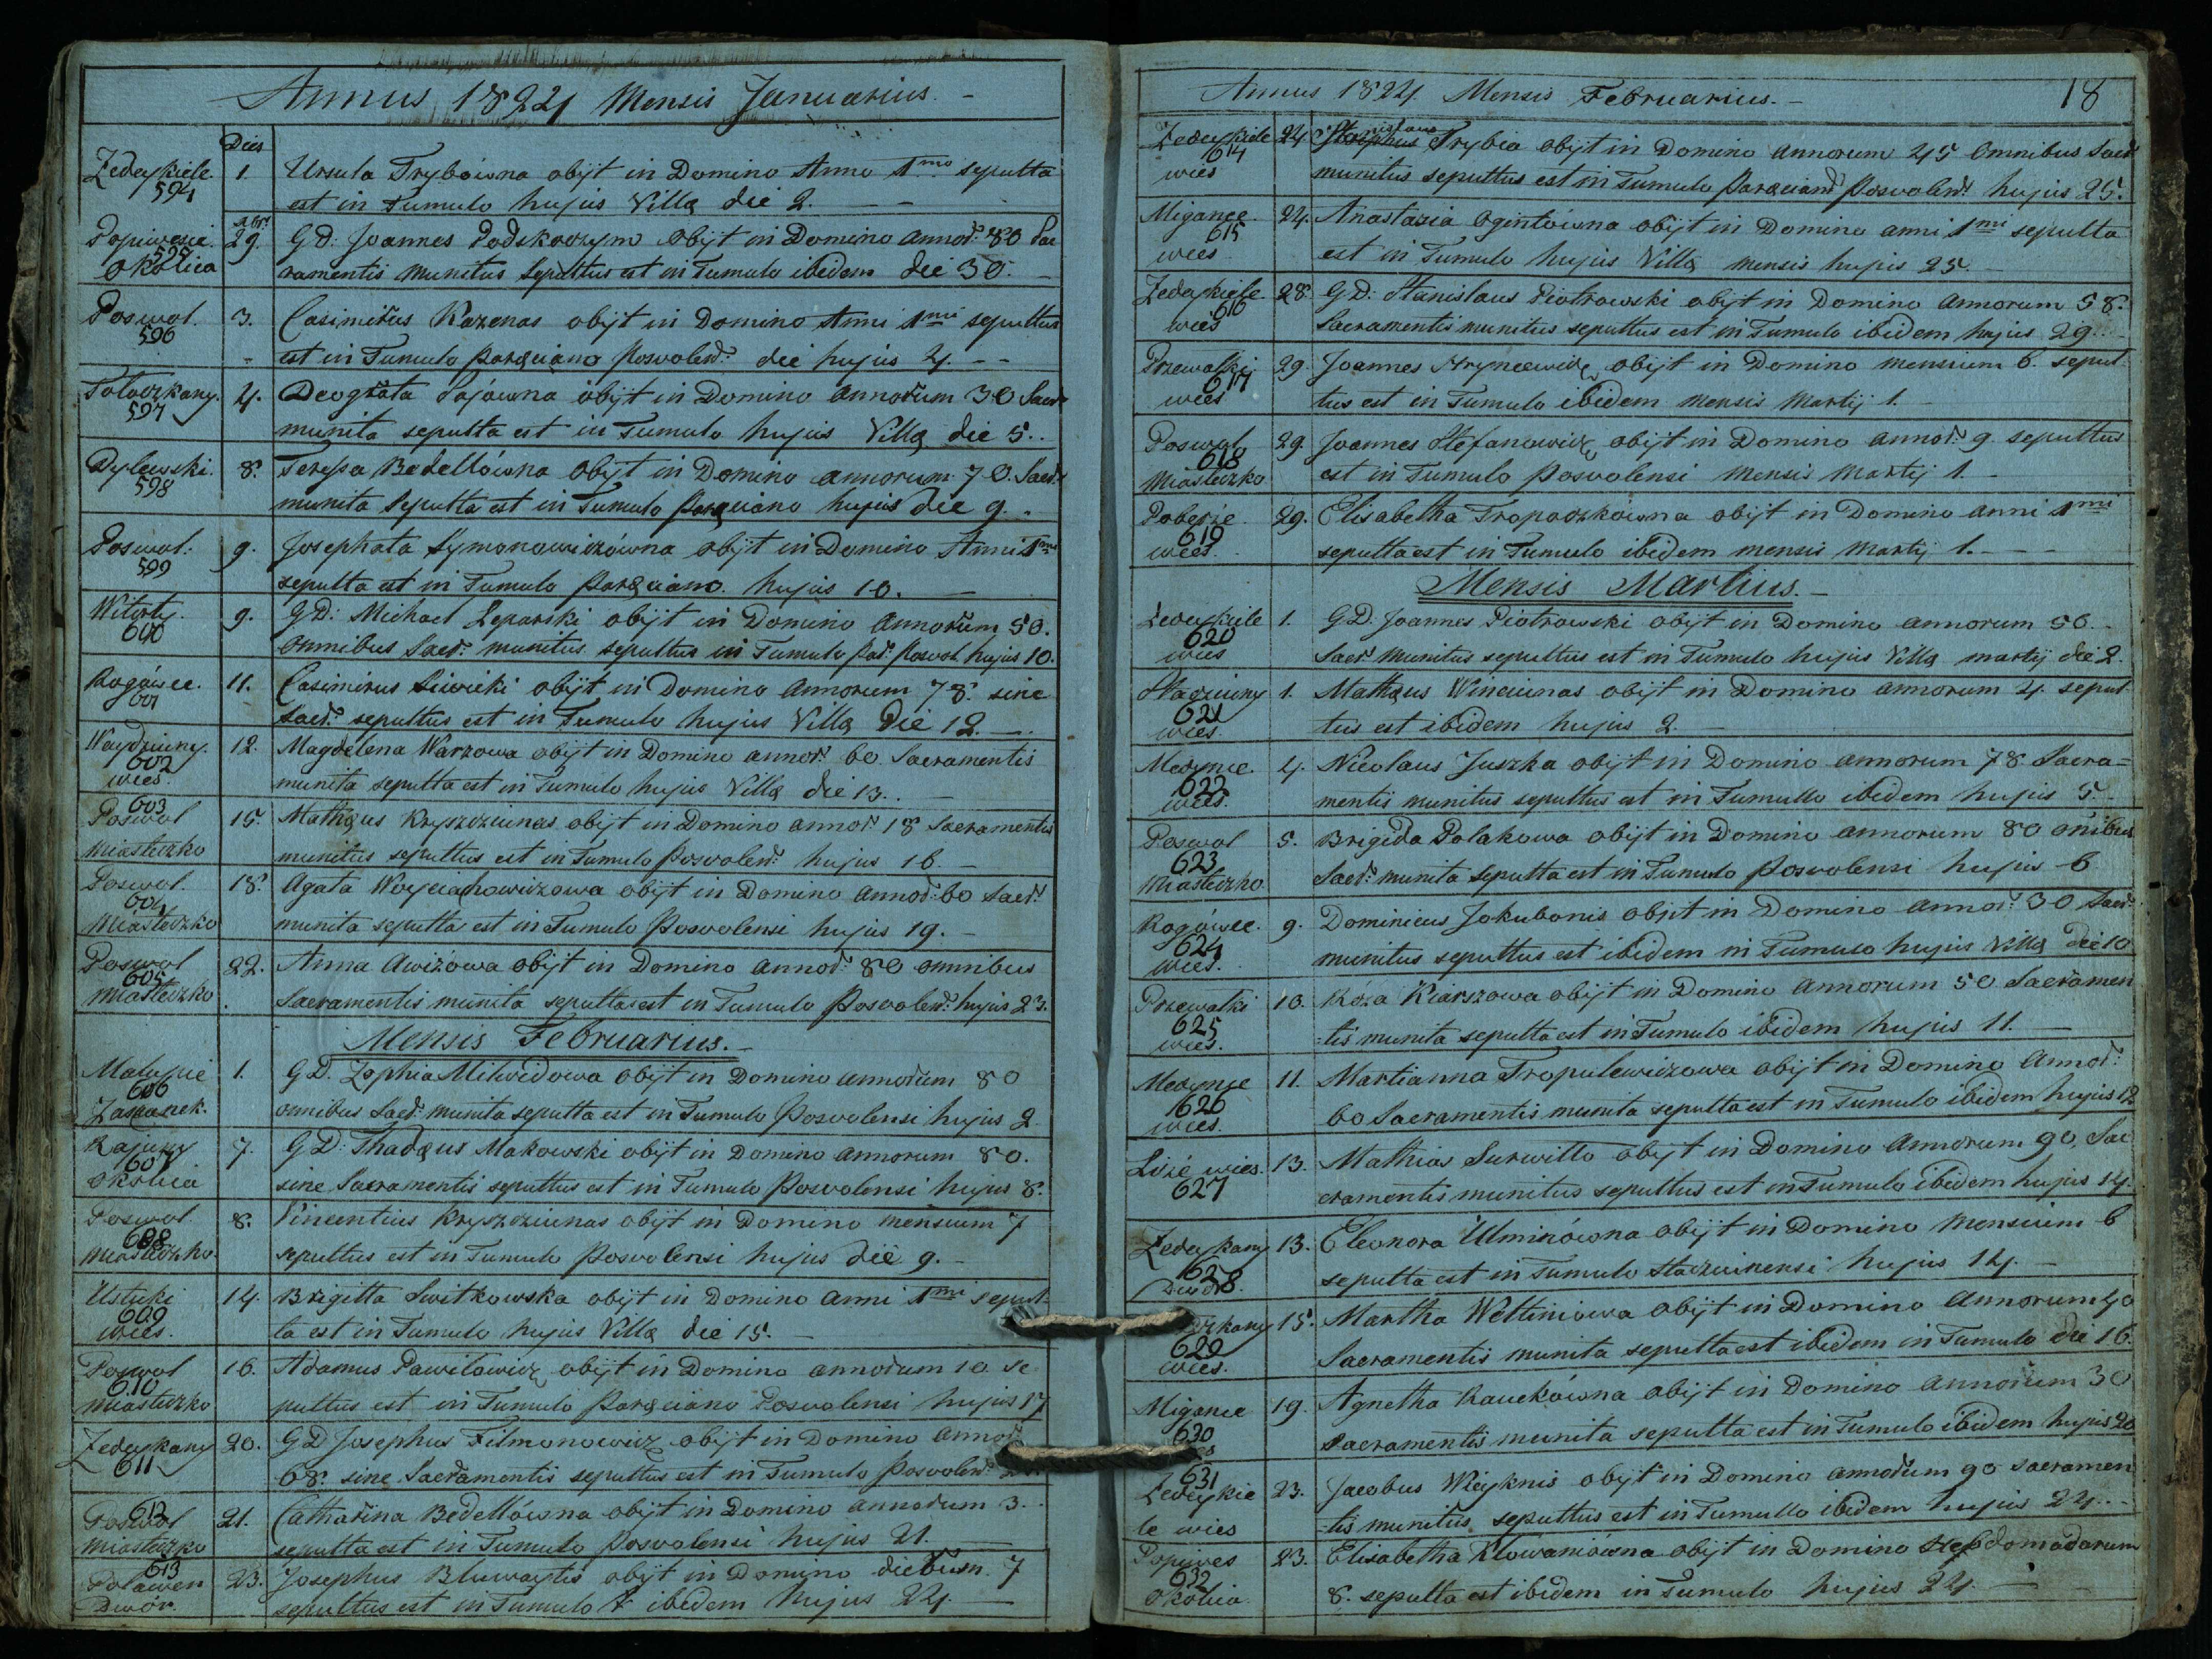 Annus 1824 Mensis Januarius. -
Dies
Zedeykiele. 1. Ursula Trybówna obijt in Domino Anno 1mo sepulta
594 est in Tumulo hujus Villæ die 2. - -
Popiwesie 29. GD: Joannes Podskoczym obijt in Domino annor: 80 Sac
595
Okolica ramentis munitus sepultus est in Tumulo ibidem die 30. -
Poswol. 3. Casimirus Kazenas obijt in Domino Anni 1mi sepultus
596 est in Tumulo Paræciano Poswolen: die hujus 4. - -
Toloczkany. 4. Deograta Sajówna obijt in Domino annorum 30 Sacr:
597 munita sepulta est in Tumulo hujus Villæ die 5..
Dylewski. 8. Teressa Bedellówna obijt in Domino annorum 70. Sacr:
598 munita sepulta est in Tumulo Paræciano hujus die 9. -
Poswol. 9. Josephata Symonowiczówna obijt in Domino Anni 1mi
599 sepulta est in Tumulo Paræciano. hujus 10. -
Witorty. 9. GD: Michael Leparski obijt in Domino Annorum 50.
600 omnibus Sacr: munitus sepultus in Tumulo Par: Poswol hujus 10.
Rogówce. 11. Casimirus Siwicki obijt in Domino Annorum 78. sine
601 Sacr: sepultus est in Tumulo hujus Villæ Die 12. -
Waydziuny. 12. Magdelena Warzowa obijt in Domino annor: 60 Sacramentis
602
wies. munita sepulta est in Tumulo hujus Villæ die 13. . -
603
Poswol 15. Mathæus Kryszcziunas obijt in Domino annor: 18 Sacramentis
Miasteczko munitus sepultus est in Tumulo Poswolen: hujus 16. -
Poswol. 18. Agata Woyciachowiczowa obijt in Domino Annor: 60 Sacr:
604
Miasteczko munita sepulta est in Tumulo Poswolensi hujus 19. -
Poswol 22. Anna Awizowa obijt in Domino Annor: 80 omnibus
605
Miasteczko Sacramentis munita sepulta est in Tumulo Poswolen: hujus 23.
Mensis Februarius. -
Malupie 1. GD. Zophia Milwidowa obijt in Domino annorum 80
606
Zascianek. omnibus Sacr: munita sepulta est in Tumulo Poswolensi hujus 2.
Rajuny 7. GD: Thadæus Makowski obijt in Domino annorum 80.
607
Okolica sine Sacramentis sepultus est in Tumulo Poswolensi hujus 8.
Poswol 8. Vincentius Kryszcziunas obijt in Domino mensium 7
608
Miasteczko sepultus est in Tumulo Poswolensi hujus die 9. -
Ustuki 14. Brigitta Switkowska obijt in Domino anni 1mi sepul
609
wies. ta est in Tumulo hujus Villæ die 15. -
Poswol 16. Adamus Pawilowicz obijt in Domino annorum 10 se
610
Miasteczko pultus est in Tumulo Paræciano Poswolensi hujus 17
Zedeykany 20. GD Josephus Filmonowicz obijt in Domino annor
611 68. sine Sacramentis sepultus est in Tumulo Poswolen:
612
Poswol 21. Catharina Bedellówna obijt in Domino annorum 3.
Miasteczko sepulta est in Tumulo Poswolensi hujus 21.
613
Polawen 23. Josephus Bluwaytis obijt in Domino diebusn 7
Dwór. sepultus est in Tumulo ibidem hujus 24. -
Annus 1824. Mensis Februarius. - 18
Zedeykiele 24. Stanislaus Trybia obijt in Domino annorum 45 Omnibus Sacr
614
wies munitus sepultus est in Tumulo Paræcian: Poswolen: hujus 25.
Migance. 24. Anastazia Ogintówna obijt in Domino anni 1mi sepulta
615
wies est in Tumulo hujus Villæ mensis hujus 25. -
Zedeykiele 28. GD: Stanislaus Piotrowski obijt in Domino annorum 58.
616
wies Sacramentis munitus sepultus est in Tumulo ibidem hujus 29. -
Przewalki 29. Joannes Hryncewicz obijt in Domino mensium 6. sepul
617
wies tus est in Tumulo ibidem mensis Martij 1. -
Poswol 29. Joannes Stefanowicz obijt in Domino annor: 9. sepultus
618
Miasteczko est in Tumulo Poswolensi mensis Martij 1. -
Poberże 29. Elisabetha Tropoczkówna obijt in Domino anni 1mi
619
wies. sepulta est in Tumulo ibidem mensis Martij 1. - -
Mensis Martius. -
Zedeykiele 1. GD. Joannes Piotrowski obijt in Domino annorum 56.
620
wies Sacr: munitus sepultus est in Tumulo hujus Villæ martij die 2.
Stacziuny 1. Mathæus Winciunas obijt in Domino annorum 4. sepul
621
wies. tus est ibidem hujus 2. -
Medynce. 4. Nicolaus Juszka obijt in Domino annorum 78 Sacra=
622
wies. mentis munitus sepultus est in Tumullo ibidem hujus 5. -
Poswol 5. Brigida Polakowa obijt in Domino annorum 80 omibus
623
Miasteczko Sacr: munita sepulta est in Tumulo Poswolensi hujus 6
Rogówce. 9. Dominicus Jokubonis obijt in Domino annor: 30 Sacr:
624
wies. munitus sepultus est ibidem in Tumulo hujus Villæ die 10
Przewalki 10. Róża Kiarszowa obijt in Domino Annorum 50 Sacramen
625
wies. =tis munita sepulta est in Tumulo ibidem hujus 11. -
Medynce 11. Martianna Tropulewiczowa obijt in Domino Annor:
626
wies. 60 Sacramentis munita sepulta est in Tumulo ibidem hujus 12
Liżé wies. 13. Mathias Surwillo obijt in Domino Annorum 90 Sac
627 cramentis munitus sepultus est in Tumulo ibidem hujus 14.
Zedeykany 13. Eleonora Ulminówna obijt in Domino Mensium 6
628
Dwór. sepulta est in Tumulo Stacziunensi hujus 14. -
czkany 15. Martha Weltiniowa obijt in Domino Annorum 40
629
wies. Sacramentis munita sepulta est ibidem in Tumulo die 16.
Migance 19. Agnetha Rauckówna obijt in Domino annorum 30
630
Sacramentis munita sepulta est in Tumulo ibidem hujus 20
631
Zedeykie 23. Jacobus Wieyknis obijt in Domino annorum 90 sacramen
le wies =tis munitus sepultus est in Tumullo ibidem hujus 24. -
Popiwes 23. Elisabetha Klowaniówna obijt in Domino Hebdomadarum
632
Okolica 8. sepulta est ibidem in Tumulo hujus 24. -